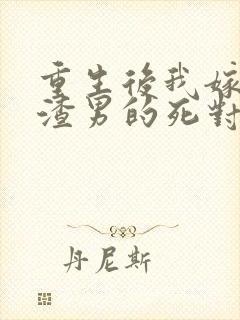 重生後我嫁
渣男的死對
丹尼斯